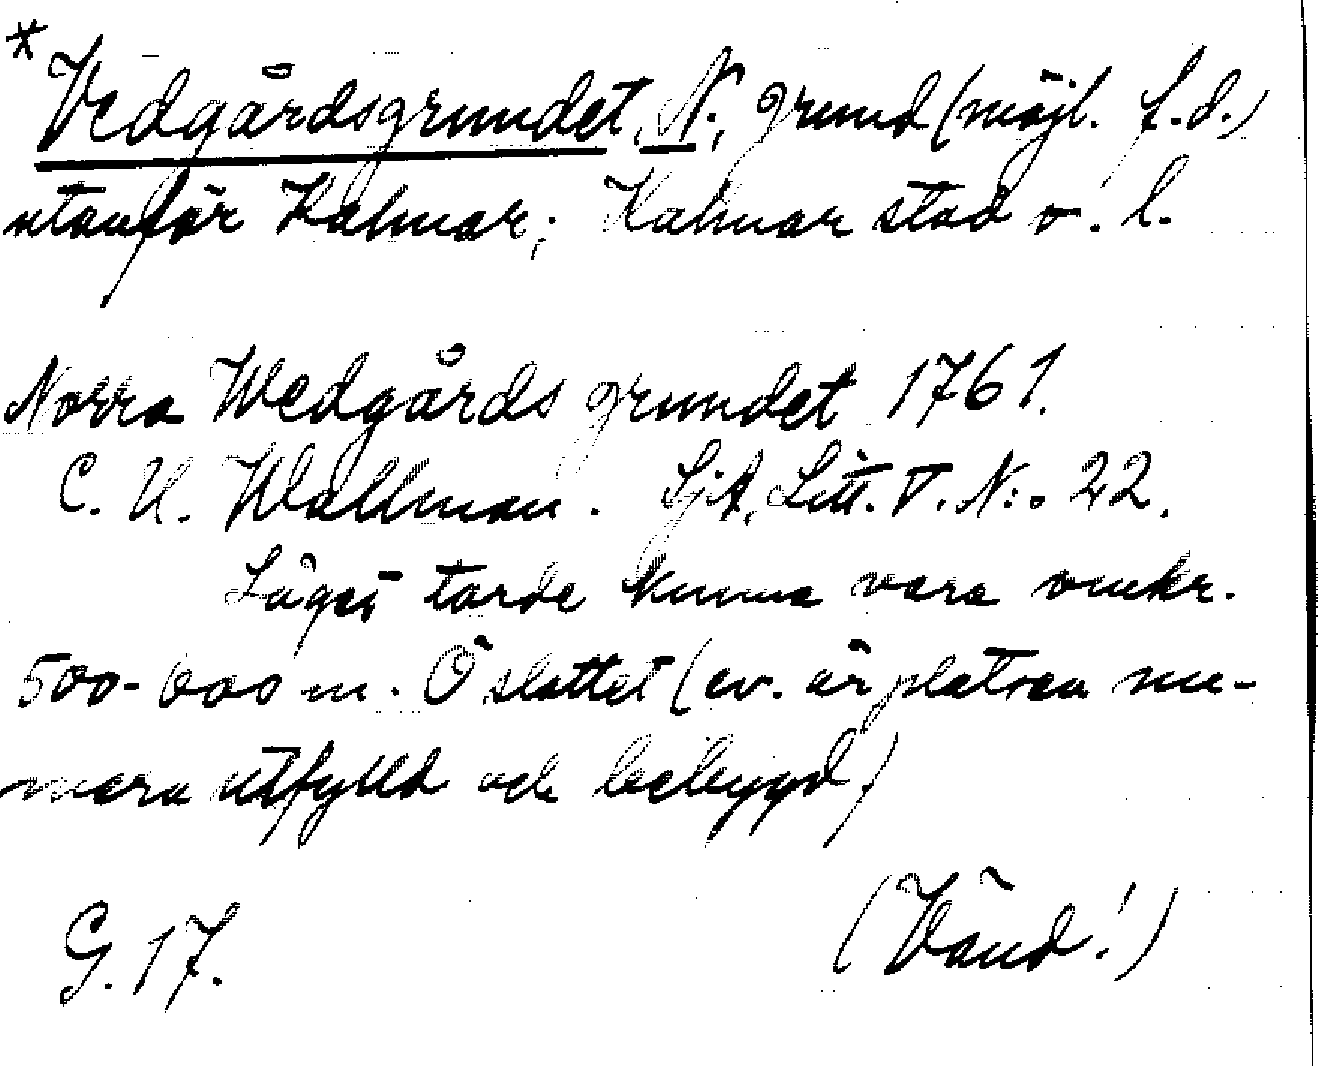 * Vedgårdsgrundet, N., grund (möjl. f.d.)
utanför Kalmar; Kalmar stad o. l.
Norra Wedgårds grundet 1761.
C. U. Wallman. SjA, Litt. V. N:o 22.
Läget torde kunna vara omkr.
500-600 m. Ö slottet (ev. är platsen nu-
mera utfylld och bebyggd)
G. 17. (Vänd!)